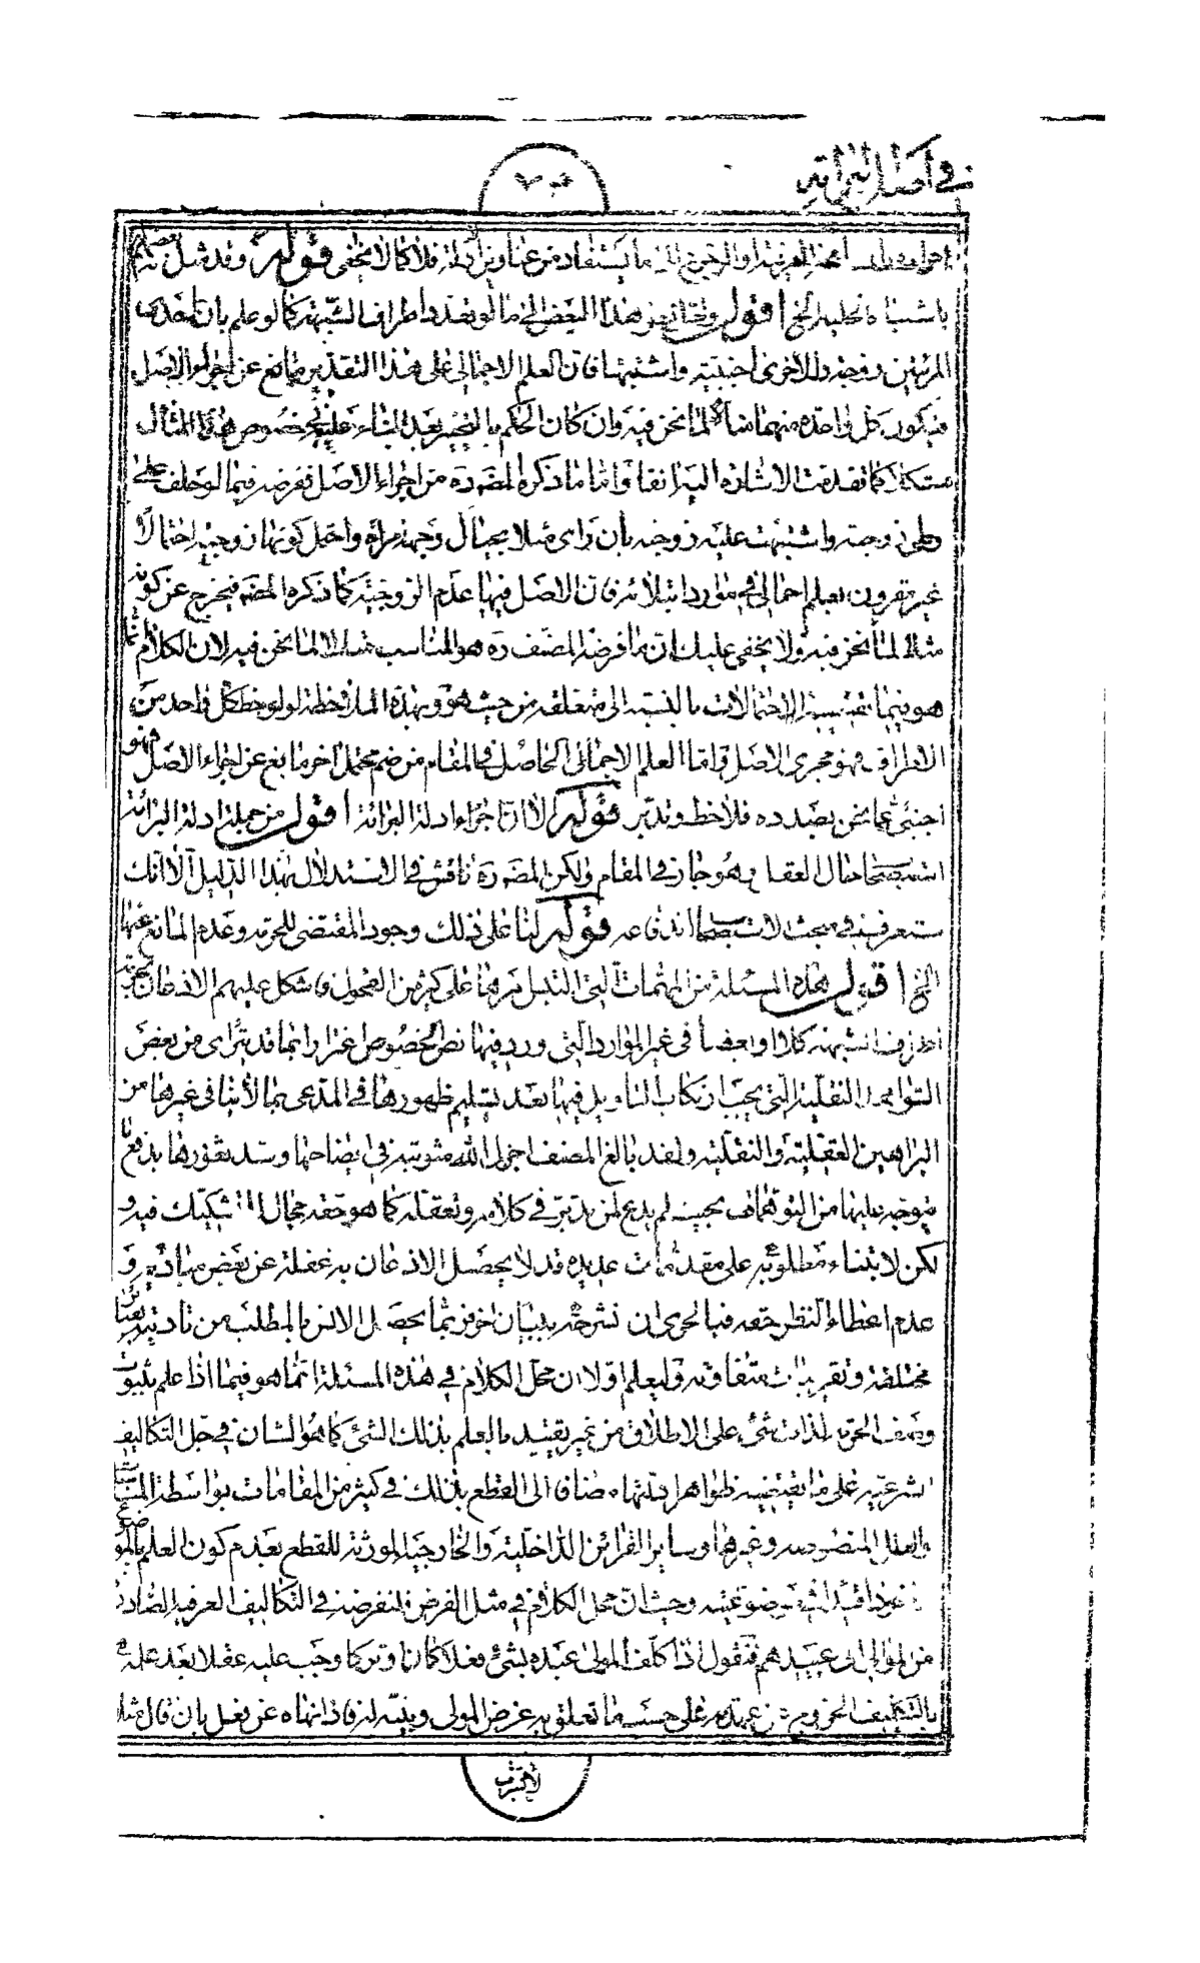 في اصل البرائة
ما يستفاد من عناوين ادلته فلا كما لا يخفى قوله وقد مثل
باشتباه حليلة الخ اقول وتحقق هذا البعض الى ما لو تعدد اطراف الشبهة كما لو علم بان احدى
المرئتين زوجة والاخرى اجنبية واشتبها فان العلم الاجمالي على هذا التقدير مانع عن اجراء الاصل
فيكون كل واحدة منهما مثالا لما نحن فيه وان كان الحكم بالتخيير بعد البناء عليه بخصوص هذا المثال
مشكلا كما تقدمت الاشارة اليه انفا واما ما ذكره المص ره من اجراء الاصل ففرضه فيما لو حلف على
وطي زوجته واشتبهت عليه زوجته بان راى مثلا بحيال وجهه مرأة واحتمل كونها زوجته احتمالا
غير مقرون بعلم اجمالي في موارد ابتلائه فان الاصل فيها عدم الزوجية كما ذكره المصه فيخرج عن كونه
مثالا لما نحن فيه ولا يخفى عليك ان ما فرضه المصنف ره هو المناسب مثالا لما نحن فيه لان الكلام انما
هو فيما تقتضيه الاحتمالات بالنسبة الى متعلقه من حيث هو وبهذه الملاحظة لو لوحظ كل واحد من
الاطراف فهو مجرى الاصل واما العلم الاجمالي الحاصل في المقام من ضم محتمل اخر مانع عن اجراء الاصل فهو
اجنبي عما نحن بصدده فلاحظ وتدبر قوله لا اجراء ادلة البرائة اقول من جملة ادلة البرائة
استصحاب حال العقل وهو جار في المقام ولكن المص ره ناقش في الاستدلال بهذا الدليل الا انك
ستعرف في مبحث الاستصحاب اندفاعه قوله لنا على ذلك وجود المقتضي للحرمة وعدم المانع عنها
الخ اقول هذه المسئلة من المهمات التي التبس امرها على كثير من الفحول فاشكل عليهم الاذعان بحرمة
اطراف الشبهة كلا او بعضا في غير الموارد التي ورد فيها نص بالخصوص اغترارا بما قد يترائى من بعض
الظواهر النقلية التي يجب ارتكاب التاويل فيها بعد تسليم ظهورها في المدعى بما لا ينافي غيرها من
البراهين العقلية والنقلية ولقد بالغ المصنف اجزل الله مثوبته في ايضاحها وسد ثغورها بدفع ما
يتوجه عليها من التوهمات بحيث لم يدع لمن تدبر في كلامه وتعقله كما هو حقه مجال التشكيك فيه و
لكن لابتناء مطلوبه على مقدمات عديدة قد لا يحصل الاذعان به غفلة عن بعض مباديه و
عدم اعطاء النظر حقه فبالحري ان نشرحه ببيان اخر فربما يحصل الانس بالمطلب من تاديته بعبائر
مختلفة وتقريبات متفاوتة وليعلم اولا ان محل الكلام في هذه المسئلة انما هو فيما اذا علم بثبوت
وصف الحرمة لذات شيء على الاطلاق من غير تقييد بالعلم بذلك الشيء كما هو الشان في جل التكاليف
الشرعية على ما يقتضيه ظواهر ادلتها مضافا الى القطع بذلك في كثير من المقامات بواسطة المناسبات
والعلل المنصوصة وغيرها وسائر القرائن الداخلية والخارجية المورثة للقطع بعدم كون العلم بالموضوع
وحيث ان محل الكلام في مثل الفرض فلنفرضه في التكاليف العرفية الصادرة
من الموالي الى عبيدهم فنقول اذا كلف المولى عبده بشيء فعلا كان او تركا وجب عليه عقلا بعد علمه
بالتكليف الخروج عن عهدته على حسب ما تعلق به غرض المولى وبينه له فاذا نهاه عن فعل بان قال مثلا
لا تشرب